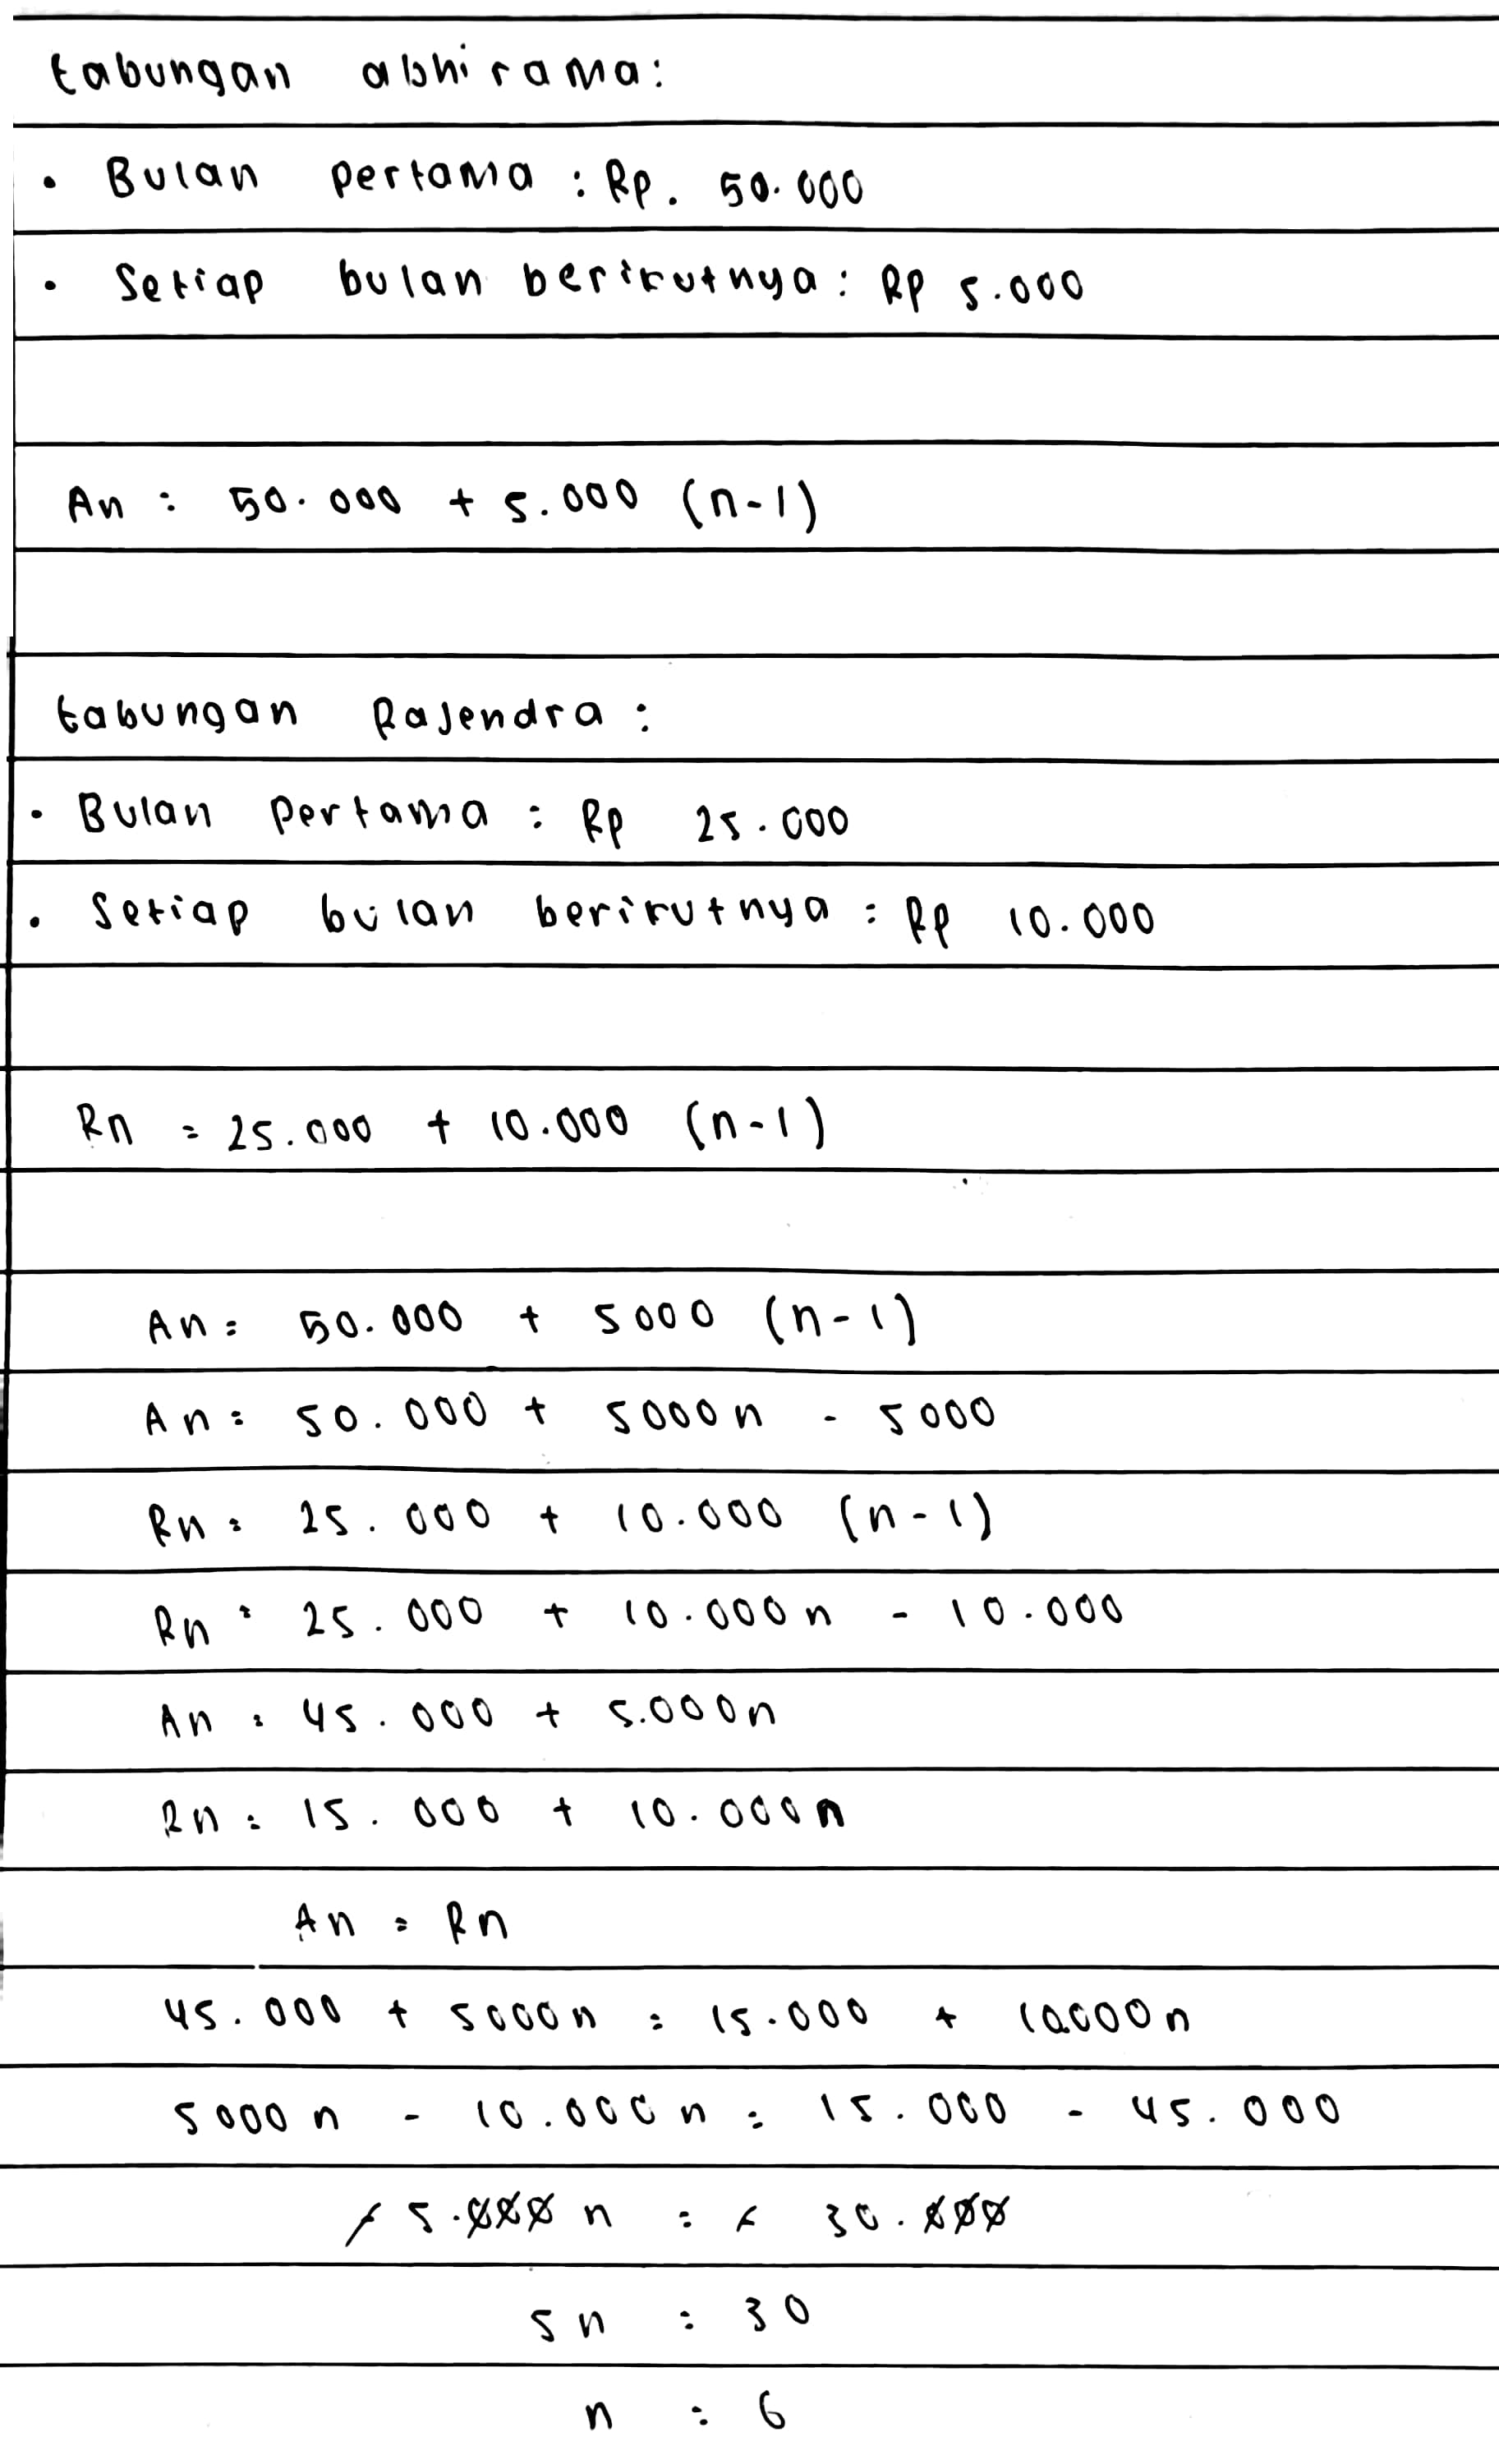 tabungan abhirama:
• Bulan pertama : Rp. 50.000
• Setiap bulan berikutnya : Rp 5.000
An : 50.000 + 5.000 (n-1)
tabungan Rajendra :
• Bulan Pertama : Rp 25.000
• Setiap bulan berikutnya : Rp 10.000
Rn = 25.000 + 10.000 (n-1)
An = 50.000 + 5000 (n-1)
An = 50.000 + 5000n - 5000
Rn = 25.000 + 10.000 (n-1)
Rn = 25.000 + 10.000n - 10.000
An = 45.000 + 5.000n
Rn = 15.000 + 10.000n
An = Rn
45.000 + 5000n = 15.000 + 10.000n
5000n - 10.000n = 15.000 - 45.000
-5.000n = -30.000
5n = 30
n = 6